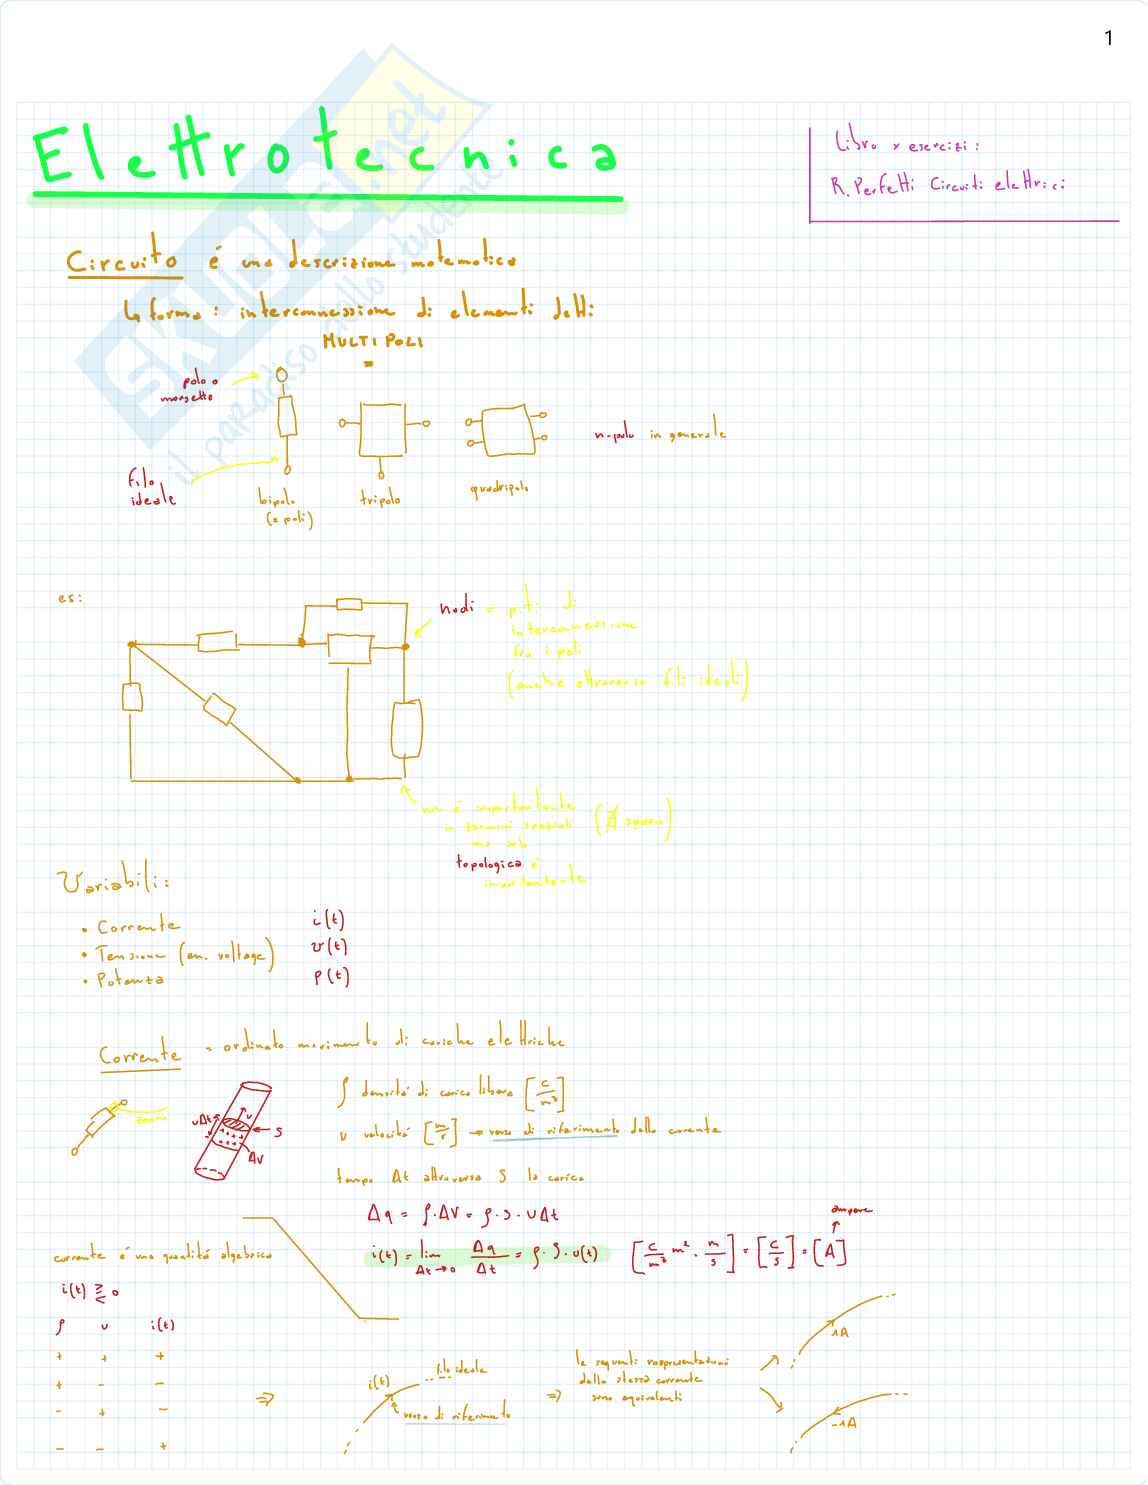 1
Elettrotecnica
Libro x esercizi:
R. Perfetti Circuiti elettrici
SKUOLA.net
il paradiso dello studente
Circuito é una descrizione matematica
↳ forma: interconnessione di elementi detti
MULTIPOLI
polo o
morsetto
filo
ideale
bipolo
(2 poli)
tripolo
quadripolo
n-polo in generale
es:
nodi = p.ti di
interconnessione
fra i poli
(anche attraverso fili ideali)
non é importante
in termini spaziali (∄ spazio)
ma solo
topologica é
importante
Variabili:
• Corrente i(t)
• Tensione (en. voltage) v(t)
• Potenza p(t)
Corrente = ordinato movimento di cariche elettriche
zoom
uΔt
u
S
ΔV
ρ densitá di carica libera [c/m³]
u velocitá [m/s] → verso di riferimento della corrente
tempo Δt attraversa S la carica
Δq = ρ·ΔV = ρ·S·uΔt
i(t) = lim Δt→0 Δq/Δt = ρ·S·u(t) [c/m³ m² · m/s] = [c/s] = [A]
ampere
corrente é una quantitá algebrica
i(t) ≷ 0
ρ u i(t)
+ + +
+ - -
- + -
- - +
⇒
i(t)
filo ideale
verso di riferimento
⇒
le seguenti rappresentazioni
della stessa corrente
sono equivalenti
1A
-1A